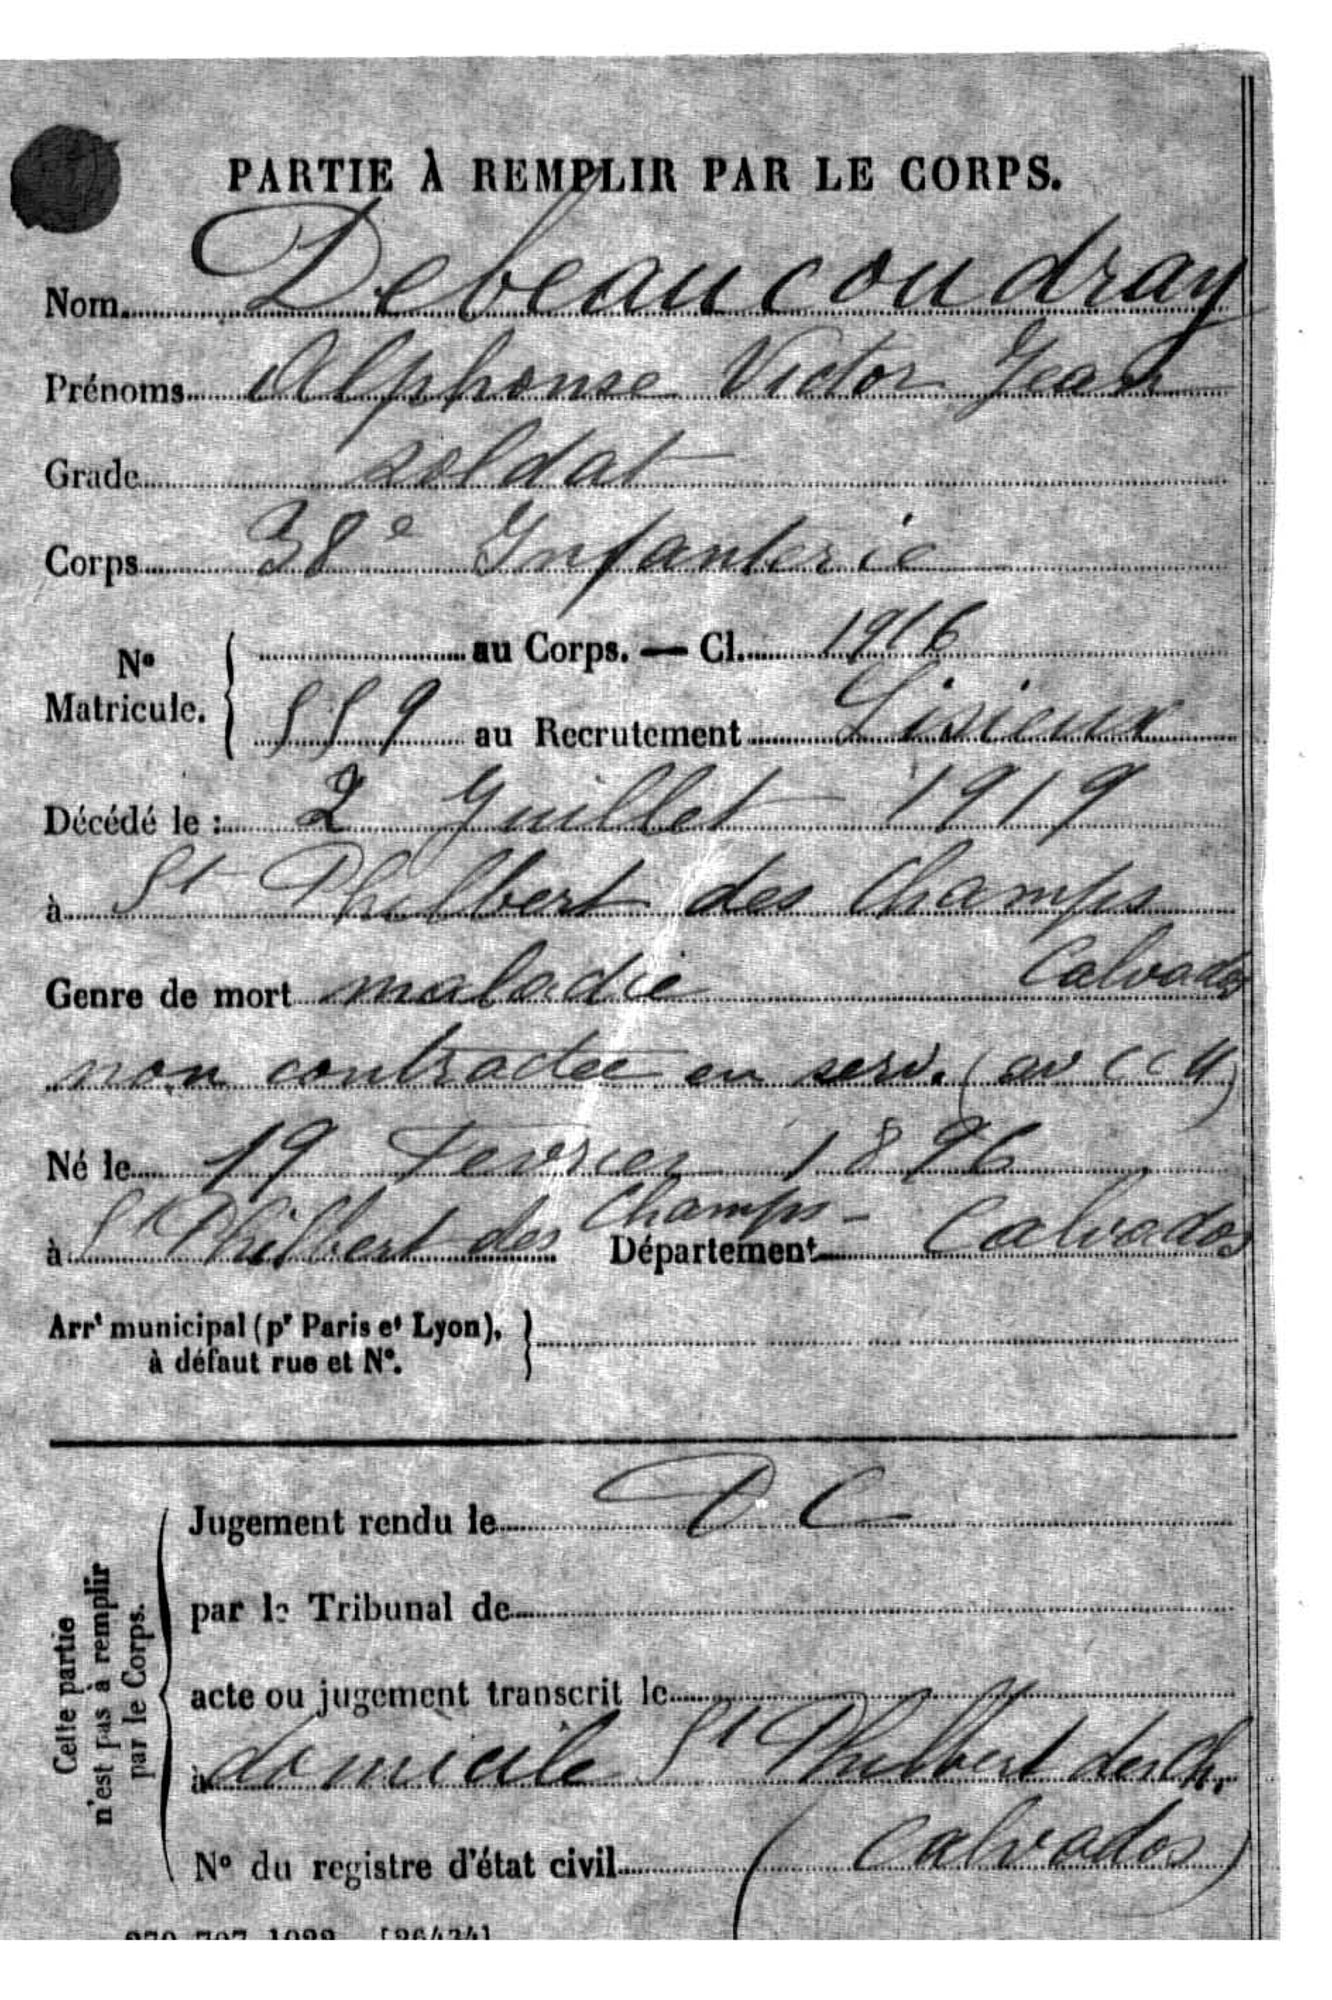 PARTIE À REMPLIR PAR LE CORPS.
Nom Debeaucoudray
Prénoms Alphonse Victor Jean
Grade soldat
Corps 38e Infanterie
No Matricule. { au Corps. — Cl. 1916
559 au Recrutement Lisieux
Décédé le : 2 Juillet 1919
à St Philbert des Champs
Calvados
Genre de mort maladie
non contractée en serv. (av CCM)
Né le 19 Fevrier 1896
à St Philbert des Champs - Département Calvados
Arrt municipal (pr Paris et Lyon), }
à défaut rue et No.
Cette partie
n'est pas à remplir
par le Corps.
Jugement rendu le D C
par le Tribunal de
acte ou jugement transcrit le
à domicile St Philbert des Ch.
(Calvados)
No du registre d'état civil